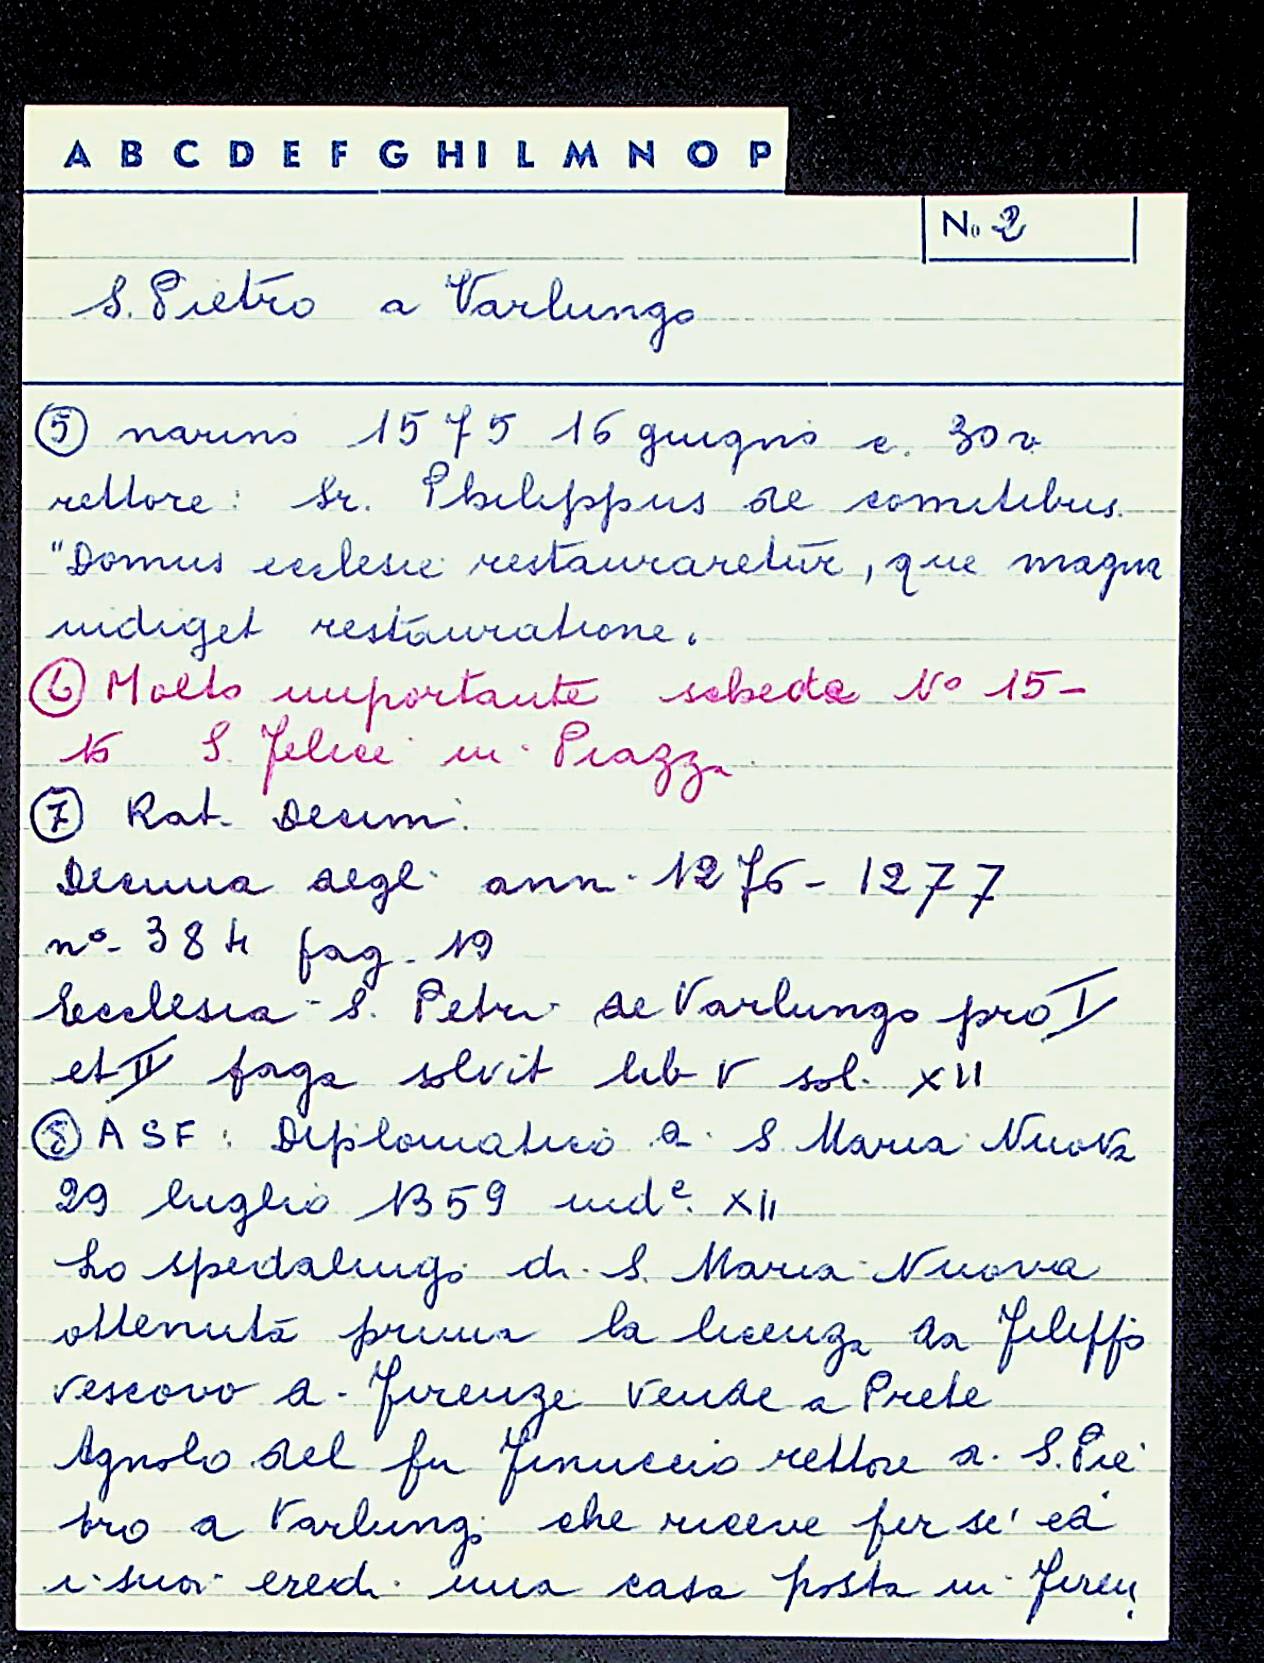 A B C D E F G H I L M N O P
No 2
S. Pietro a Varlungo
⑤ narino 1575 16 giugno c. 30 v
rettore: Sr. Philippus de comitibus.
"Domus ecclesie restauraretur, que magna
indiget restauratione.
⑥ Molto importante scheda No 15-
S. Felice in Piazza
⑦ Rat. Decim.
Decima degli ann. 1276-1277
no- 384 pag. 19
Ecclesia S. Petri de Varlungo pro I
et II paga solvit lib V sol. XII
⑧ ASF: Diplomatico di S. Maria Nuova
29 luglio 1359 inde. XII
Lo spedalingo di S. Maria Nuova
ottenuta prima la licenza da Filippo
vescovo di Firenze vende a Prete
Agnolo del fu Finuccio rettore di S. Pie
tro a Varlungo che riceve per se' ed
i suoi eredi una casa posta in Firen